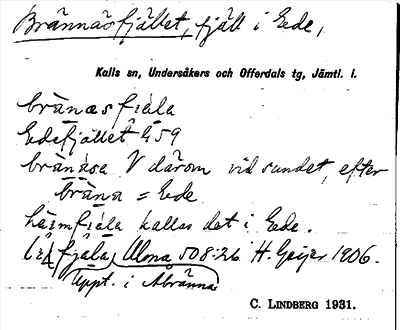 Brännåsfjället, fjäll i Ede,
Kalls sn, Undersåkers och Offerdals tg, Jämtl. l.
bränasfiala
Edefjället h 59
bränåsa V därom vid sundet, efter
bräna = Ede
häimfiala kallas det i Ede.
fjäla, Mona 508:26 H. Geijer 1906.
Uppt. i
C. LINDBERG 1931.